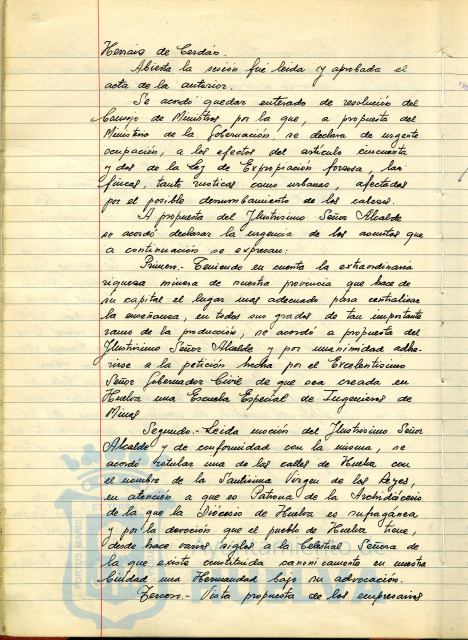 Herraiz de Cerdán.
Abierta la sesión fué leida y aprobada el
acta de la anterior.
Se acordó quedar enterado de resolución del
Consejo de Ministros por la que, a propuesta del
Ministerio de la Gobernación se declara de urgente
ocupación, a los efectos del artículo cincuenta
y dos de la Ley de Expropiación forzosa, las
fincas, tanto rusticas como urbanas, afectadas
por el posible derrumbamiento de los cabezos.
A propuesta del Ilustrisimo Señor Alcalde
se acordó declarar la urgencia de los asuntos que
a continuación se expresan:
Primero.- Teniendo en cuenta la extraordinaria
riqueza minera de nuestra provincia que hace de
su capital el lugar mas adecuado para centralizar
la enseñanza, en todos sus grados de tan importante
ramo de la producción, se acordó a propuesta del
Ilustrisimo Señor Alcalde y por unanimidad adhe-
rirse a la petición hecha por el Excelentisimo
Señor Gobernador Civil de que sea creada en
Huelva una Escuela Especial de Ingenieros de
Minas
Segundo.- Leida moción del Ilustrisimo Señor
Alcalde y de conformidad con la misma, se
acordó rotular una de las calles de Huelva con
el nombre de la Santisima Virgen de los Reyes,
en atención a que es Patrona de la Archidiócesis
de la que la Diócesis de Huelva es sufragánea
y por la devoción que el pueblo de Huelva tiene,
desde hace varios siglos a la Celestial Señora de
la que existe constituida canonicamente en nuestra
Ciudad una Hermandad bajo su advocación.
Tercero.- Vista propuesta de los empresarios
PORTUS MARIS
Ayuntamiento
HUELVA